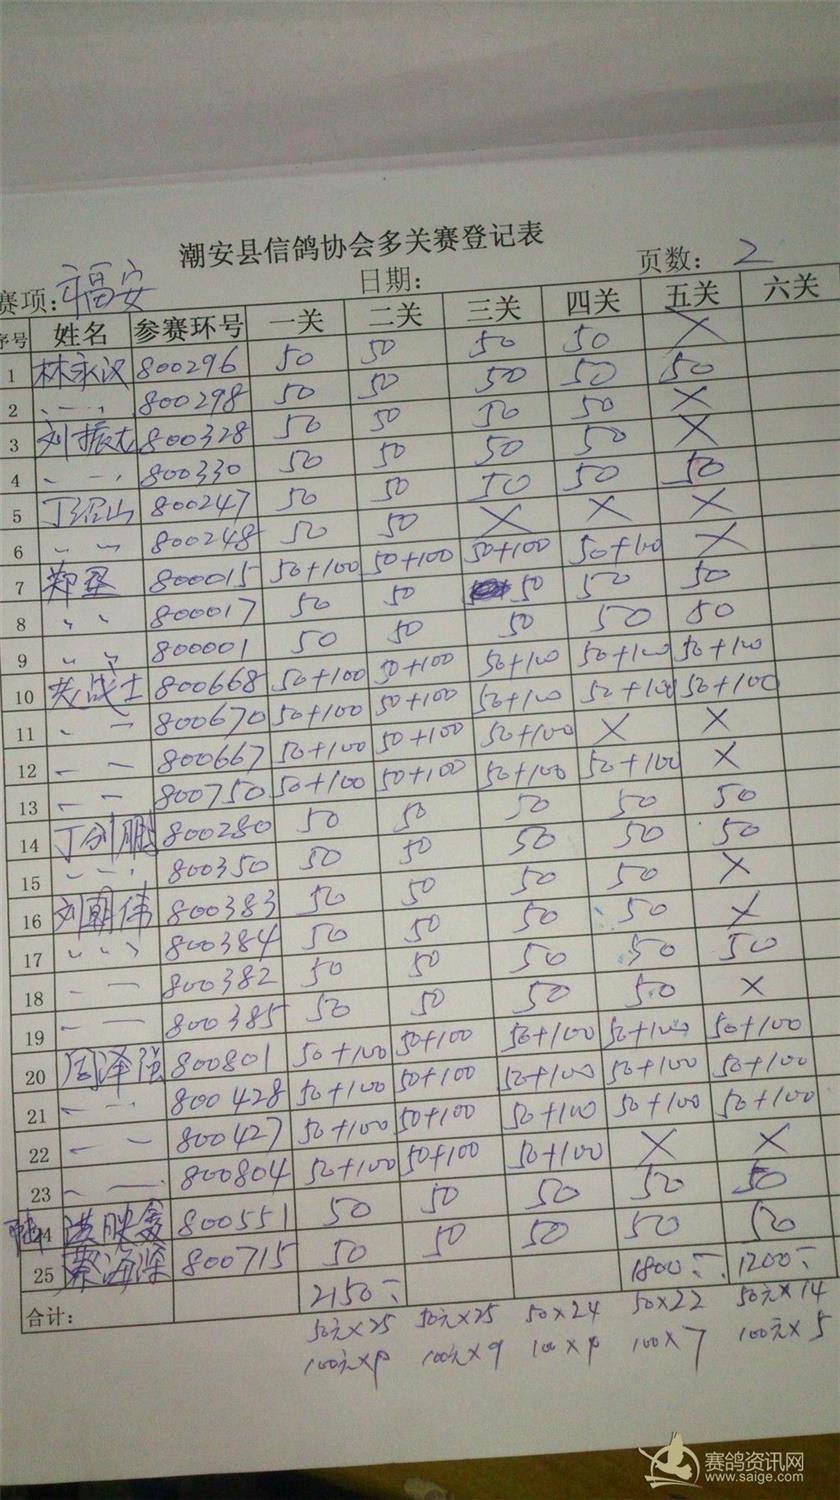 潮安县信鸽协会多关赛登记表
赛项: 福安 日期: 页数: 2
序号 姓名 参赛环号 一关 二关 三关 四关 五关 六关
1 林永汉 800296 50 50 50 50 X
2 〃 800298 50 50 50 50 50
3 刘振龙 800328 50 50 50 50 X
4 〃 800330 50 50 50 50 X
5 丁绍山 800247 50 50 50 50 50
6 〃 800248 50 50 X X X
7 郑 800015 50+100 50+100 50+100 50+100 X
8 〃 800017 50 50 50 50 50
9 〃 800001 50 50 50 50 50
10 战士 800668 50+100 50+100 50+100 50+100 50+100
11 〃 800670 50+100 50+100 50+100 50+100 50+100
12 〃 800667 50+100 50+100 50+100 X X
13 〃 800750 50+100 50+100 50+100 50+100 X
14 丁剑鹏 800280 50 50 50 50 50
15 〃 800350 50 50 50 50 50
16 刘朝伟 800383 50 50 50 50 X
17 〃 800384 50 50 50 50 X
18 〃 800382 50 50 50 50 50
19 〃 800385 50 50 50 50 X
20 周泽强 800801 50+100 50+100 50+100 50+100 50+100
21 〃 800428 50+100 50+100 50+100 50+100 50+100
22 〃 800427 50+100 50+100 50+100 50+100 50+100
23 〃 800804 50+100 50+100 50+100 X X
24 洪映 800551 50 50 50 50 50
25 蔡海深 800715 50 50 50 50 50
合计: 2150 1800 1200
50元×25 50元×25 50×24 50×22 50元×14
100元×9 100元×9 100×9 100×7 100元×5
赛鸽资讯网
www.saige.com